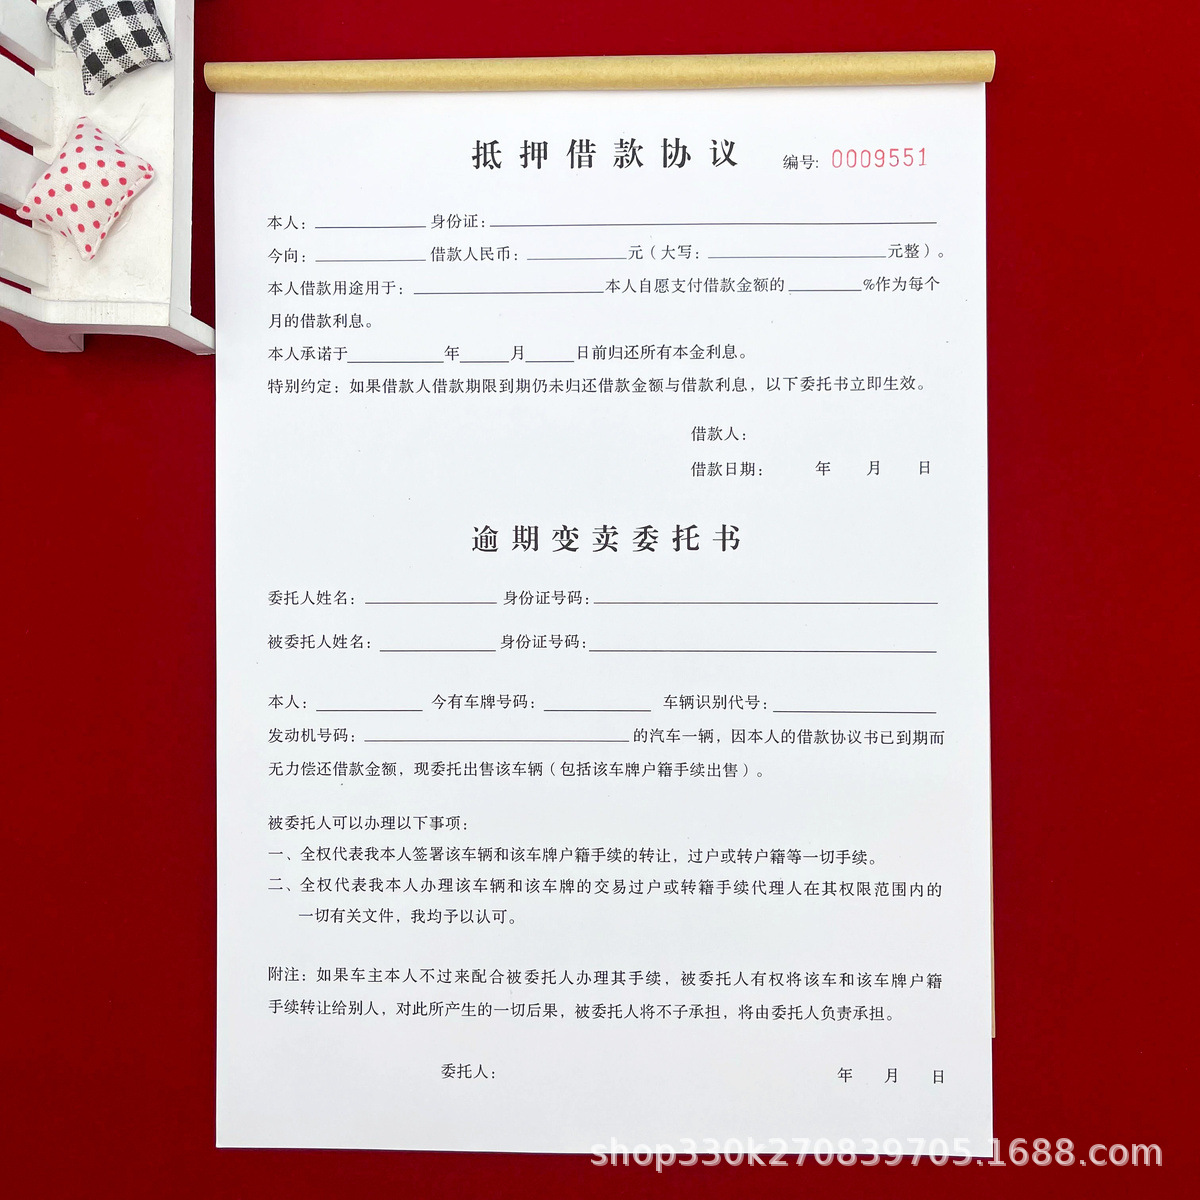 抵押借款协议 编号: 0009551
本人：____________ 身份证：____________
今向：____________ 借款人民币：____________元（大写：____________元整）。
本人借款用途用于：____________本人自愿支付借款金额的________%作为每个
月的借款利息。
本人承诺于________年_____月_____日前归还所有本金利息。
特别约定：如果借款人借款期限到期仍未归还借款金额与借款利息，以下委托书立即生效。
借款人：
借款日期： 年 月 日
逾期变卖委托书
委托人姓名：____________ 身份证号码：____________
被委托人姓名：____________ 身份证号码：____________
本人：____________ 今有车牌号码：____________ 车辆识别代号：____________
发动机号码：____________的汽车一辆，因本人的借款协议书已到期而
无力偿还借款金额，现委托出售该车辆（包括该车牌户籍手续出售）。
被委托人可以办理以下事项：
一、全权代表我本人签署该车辆和该车牌户籍手续的转让，过户或转户籍等一切手续。
二、全权代表我本人办理该车辆和该车牌的交易过户或转籍手续代理人在其权限范围内的
一切有关文件，我均予以认可。
附注：如果车主本人不过来配合被委托人办理其手续，被委托人有权将该车和该车牌户籍
手续转让给别人，对此所产生的一切后果，被委托人将不子承担，将由委托人负责承担。
委托人： 年 月 日
shop330k270839705.1688.com